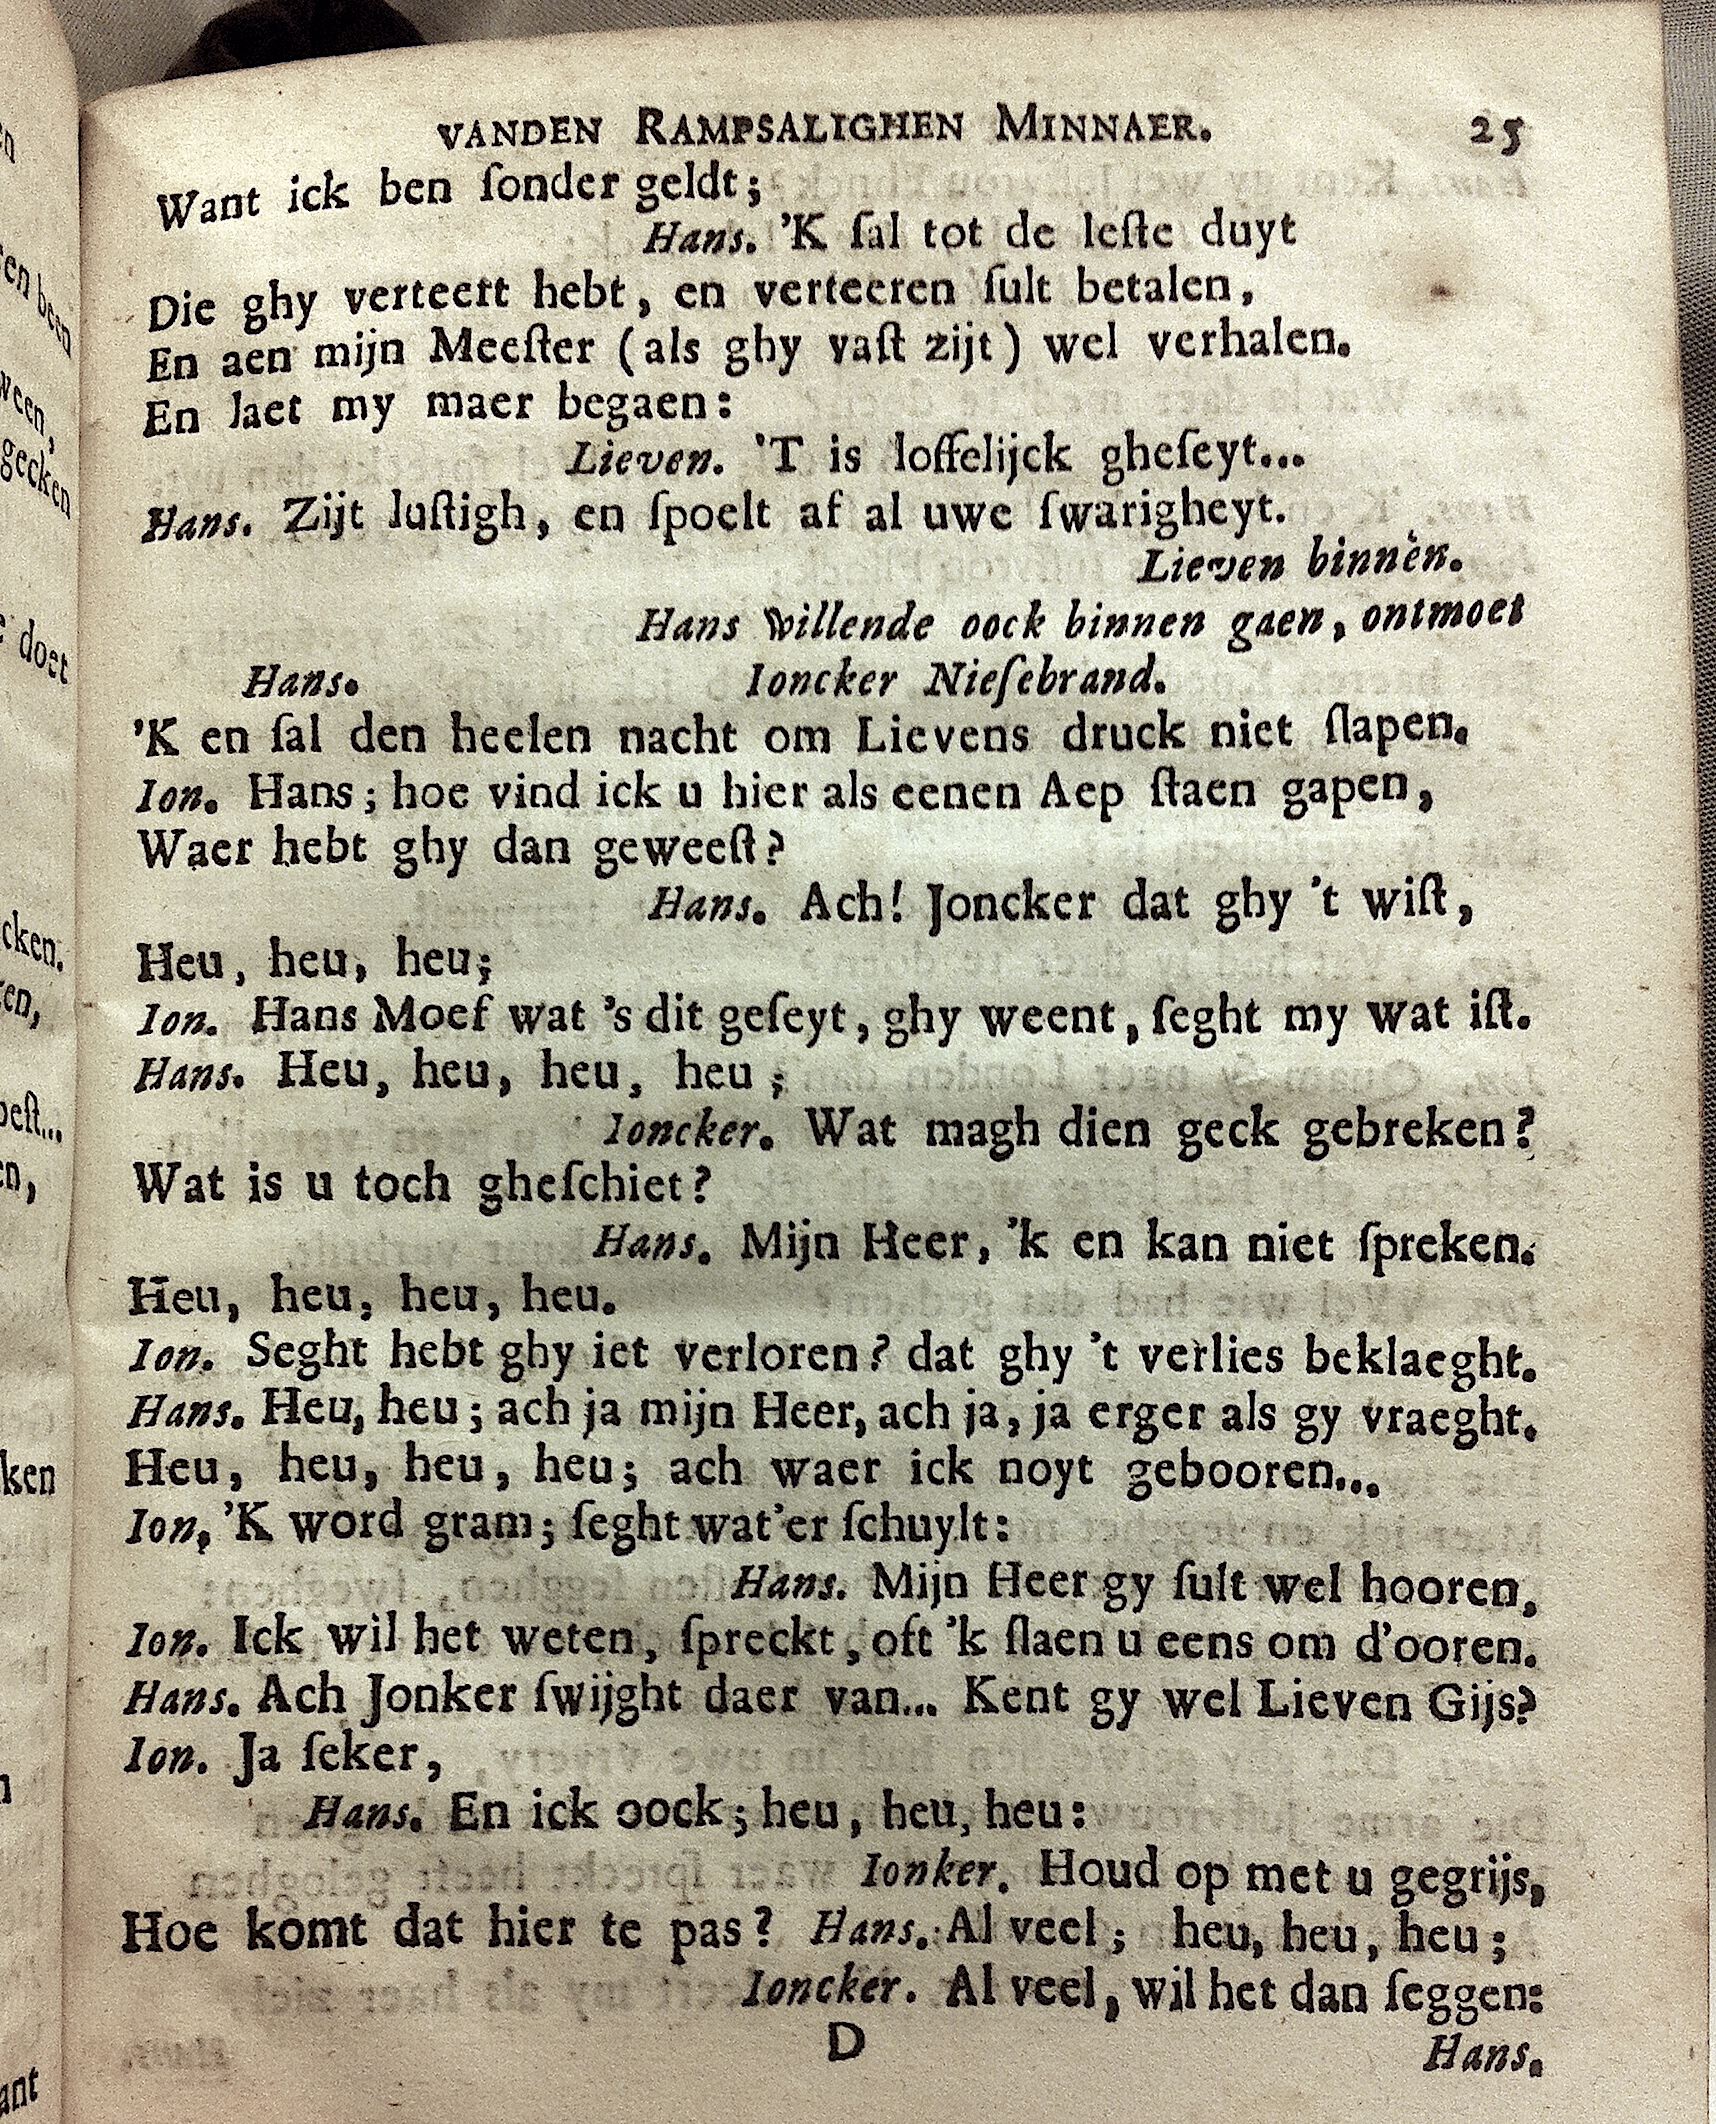 VANDEN RAMPSALIGHEN MINNAER. 25
Want ick ben ſonder geldt;
Hans. 'K ſal tot de leſte duyt
Die ghy verteert hebt, en verteeren ſult betalen,
En aen mijn Meeſter (als ghy vaſt zijt) wel verhalen.
En laet my maer begaen:
Lieven. 'T is loffelijck gheſeyt...
Hans. Zijt luſtigh, en ſpoelt af al uwe ſwarigheyt.
Lieven binnèn.
Hans willende oock binnen gaen, ontmoet
Hans. Ioncker Nieſebrand.
'K en ſal den heelen nacht om Lievens druck niet ſlapen.
Ion. Hans; hoe vind ick u hier als eenen Aep ſtaen gapen,
Waer hebt ghy dan geweeſt?
Hans. Ach! Joncker dat ghy 't wiſt,
Heu, heu, heu;
Ion. Hans Moef wat 's dit geſeyt, ghy weent, ſeght my wat iſt.
Hans. Heu, heu, heu, heu;
Ioncker. Wat magh dien geck gebreken?
Wat is u toch gheſchiet?
Hans. Mijn Heer, 'k en kan niet ſpreken.
Heu, heu, heu, heu.
Ion. Seght hebt ghy iet verloren? dat ghy 't verlies beklaeght.
Hans. Heu, heu; ach ja mijn Heer, ach ja, ja erger als gy vraeght.
Heu, heu, heu, heu; ach waer ick noyt gebooren...
Ion, 'K word gram; ſeght wat'er ſchuylt:
Hans. Mijn Heer gy ſult wel hooren,
Ion. Ick wil het weten, ſpreckt, oft 'k ſlaen u eens om d'ooren.
Hans. Ach Jonker ſwijght daer van... Kent gy wel Lieven Gijs?
Ion. Ja ſeker,
Hans. En ick oock; heu, heu, heu:
Ionker. Houd op met u gegrijs,
Hoe komt dat hier te pas? Hans. Al veel; heu, heu, heu;
Ioncker. Al veel, wil het dan ſeggen:
D
Hans.